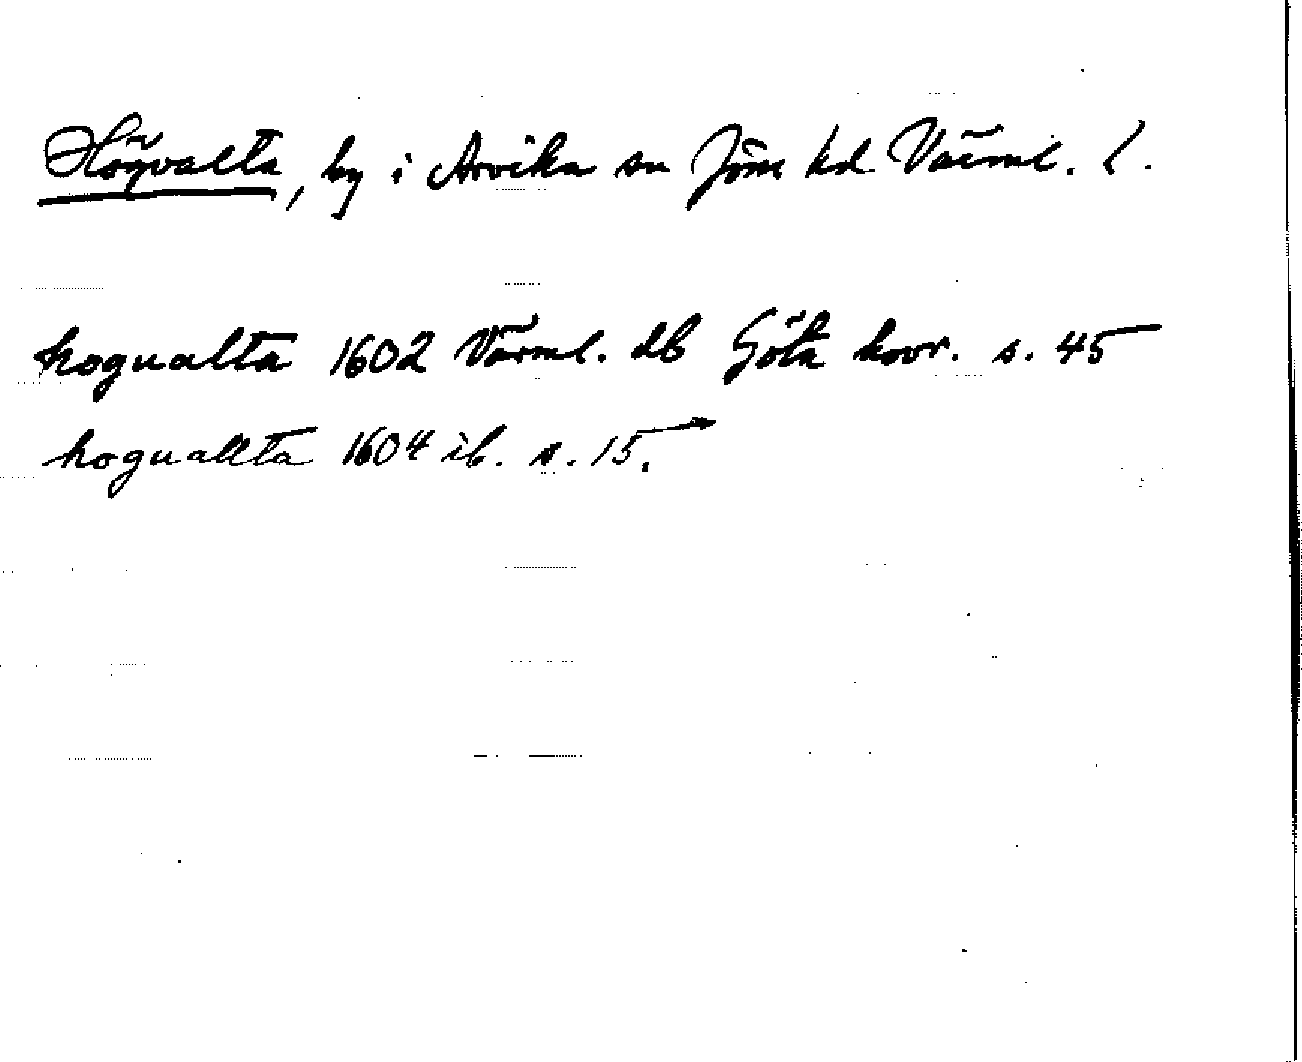 Högvalta, by i Arvika sn Jöss hd Värml. l.
hogualta 1602 Värml. db Göta hovr. s. 45
hogualtta 1604 ib. s. 15.